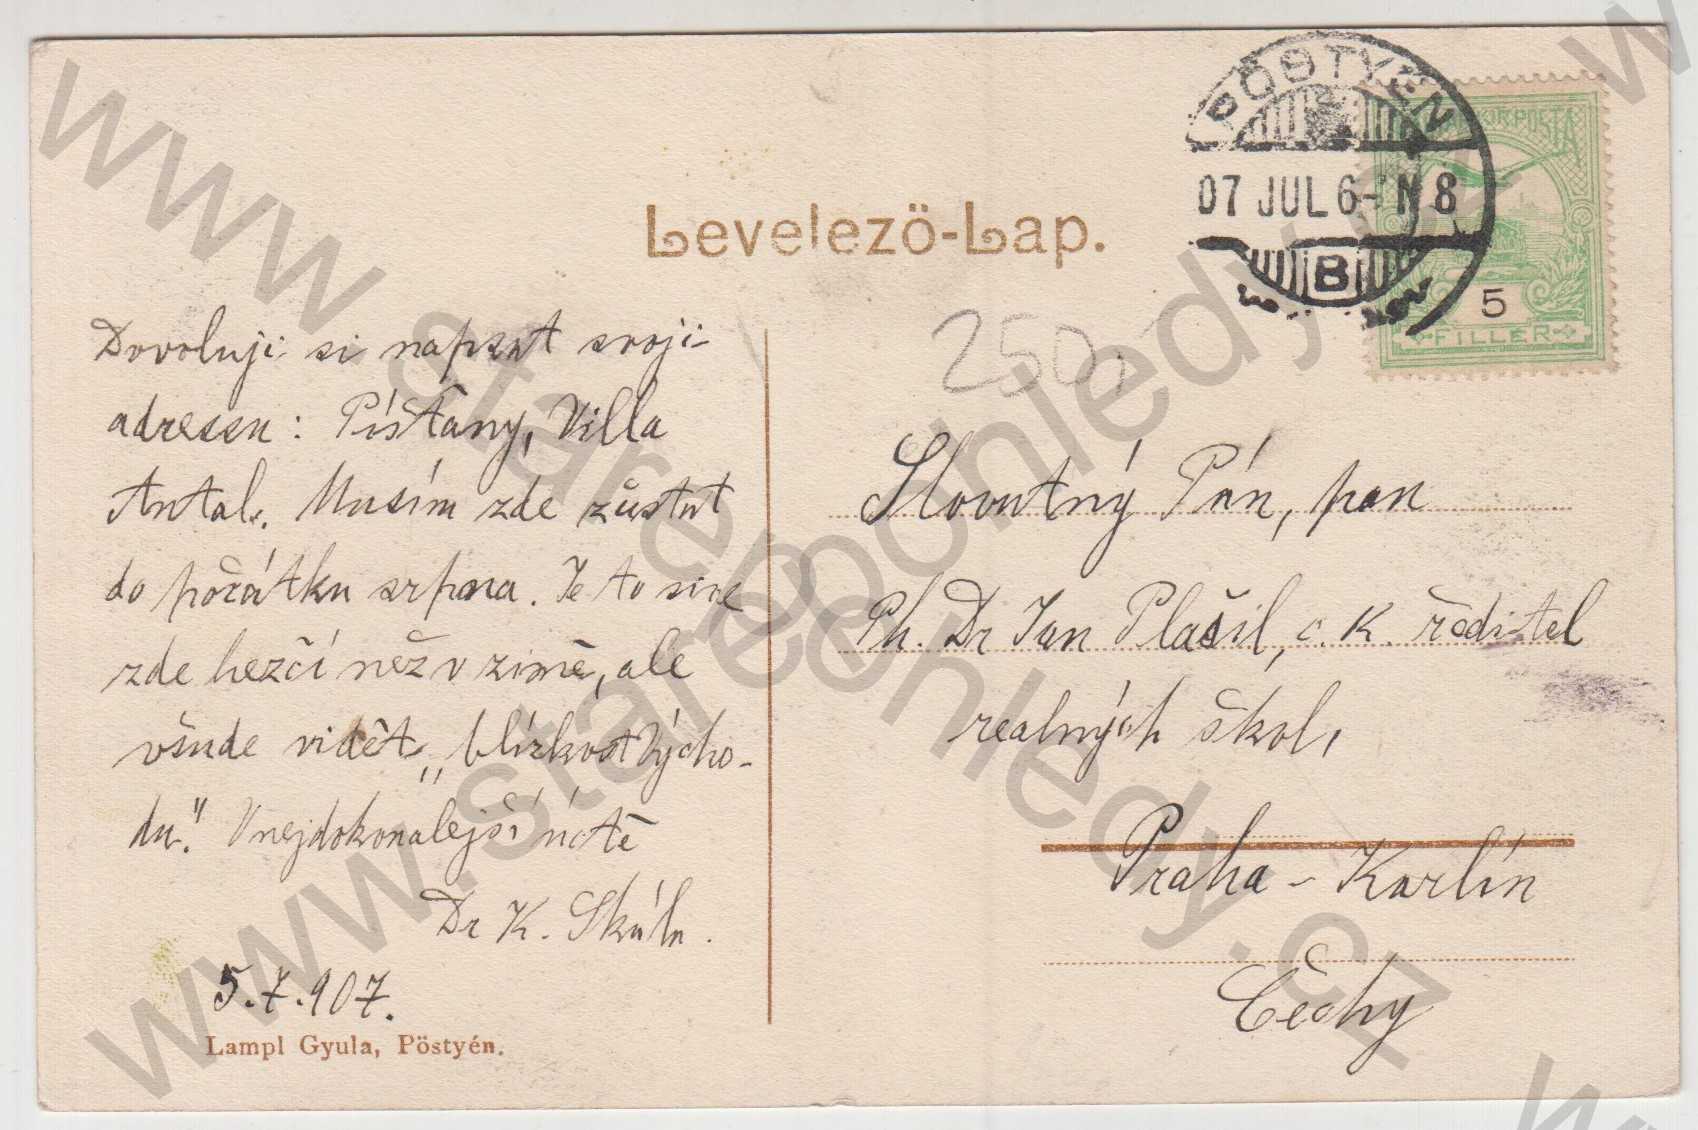 PÖSTYÉN
07 JUL 6 - N 8
B
KIR. POSTA
5
FILLÉR
Levelező-Lap.
250,-
Dovoluji si napsat svoji
adressu: Píšťany, Villa
Antal. Musím zde zůstat
do počátku srpna. Je to sice
zde hezčí než v zimě, ale
všude vidět „blízkost Výcho-
du." V nejdokonalejší úctě
Dr K. Skála.
5.7.907.
Lampl Gyula, Pöstyén.
Slovutný Pán, pan
Ph. Dr Jan Plašil, c. k. ředitel
realných škol,
Praha - Karlín
Čechy
www.starepohledy.cz
www.starepohledy.cz